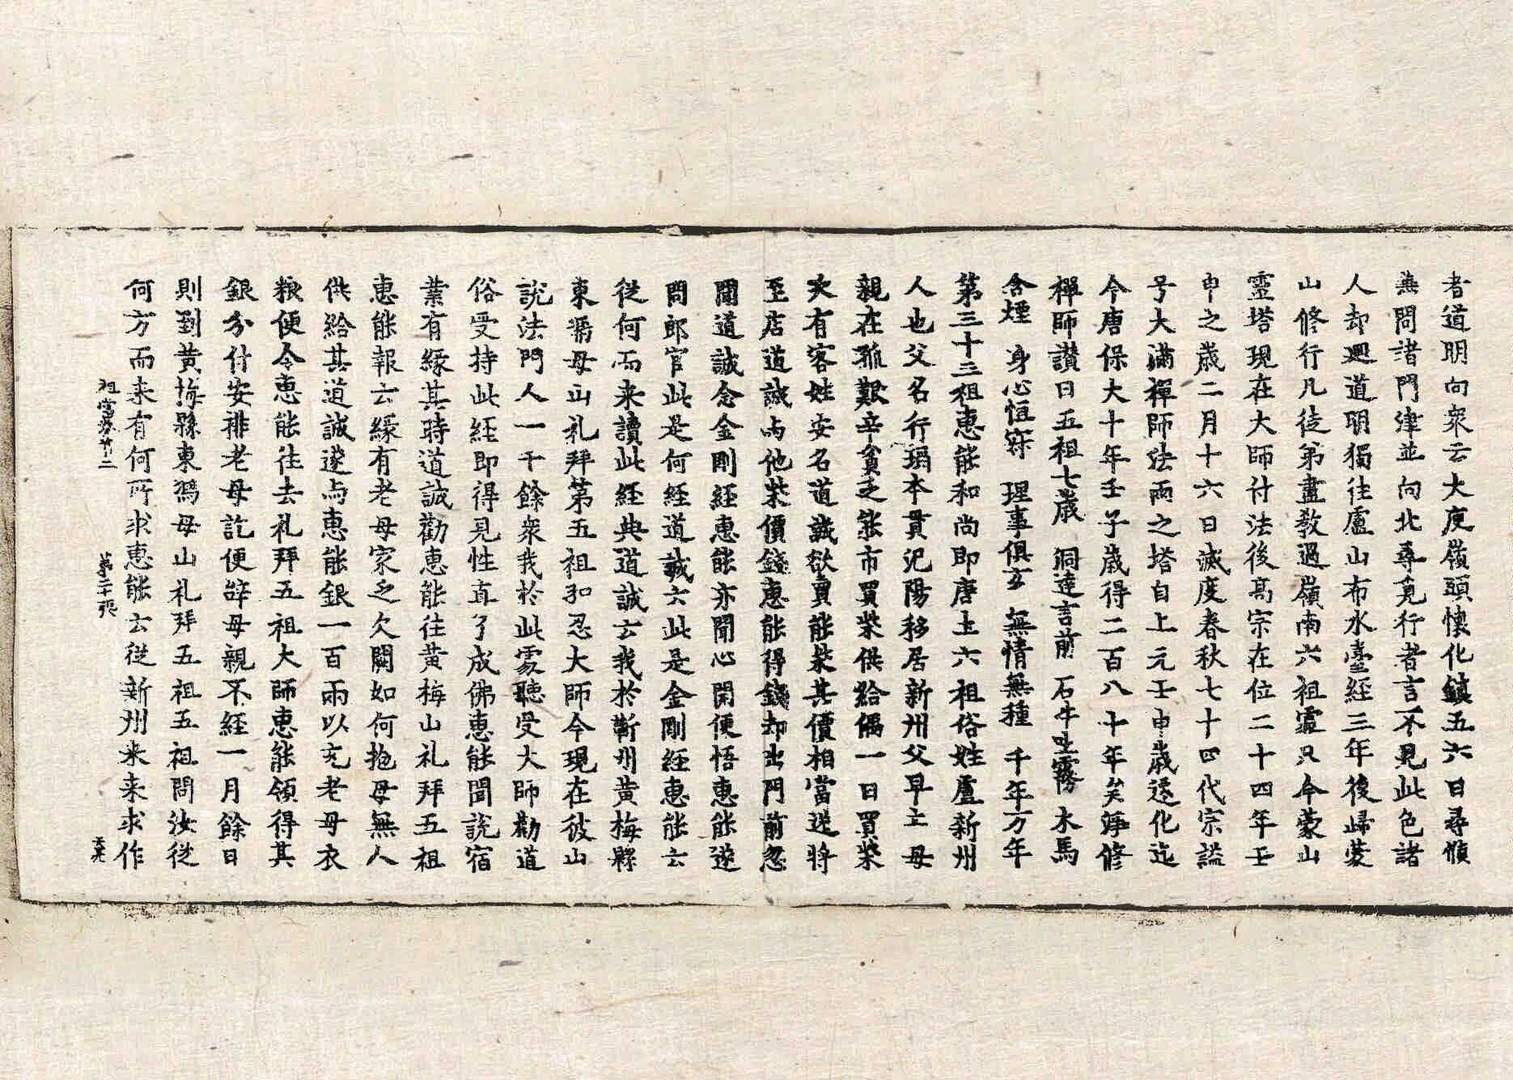 者道明向衆云大庾嶺頭懷化鎮五六日尋愼
無問諸門津並向北尋覓行者言不見此色諸
人却迴道明獨往廬山布水臺經三年後歸蒙
山修行凡徒弟盡教過嶺南六祖處只今蒙山
靈塔現在大師付法後高宗在位二十四年壬
申之歳二月十六日滅度春秋七十四代宗謚
号大滿禪師法雨之塔自上元壬申歳迁化迄
今唐保大十年壬子歳得二百八十年矣淨修
禪師讃曰五祖七歳 洞達言前 石牛吐霧 木馬
含煙 身心恒寂 理事俱玄 無情無種 千年万年
第三十三祖惠能和尚即唐土六祖俗姓盧新州
人也父名行瑫本貫氾陽移居新州父早亡母
親在孤艱辛貧乏能市買柴供給偶一日買柴
次有客姓安名道誠欲買能柴其價相當送將
至店道誠与他柴價錢惠能得錢却出門前忽
聞道誠念金剛經惠能亦聞心開便悟惠能遂
問郎官此是何經道誠云此是金剛經惠能云
從何而来讀此經典道誠云我於蘄州黄梅縣
東馮母山礼拜第五祖弘忍大師今現在彼山
說法門人一千餘衆我於此處聽受大師勸道
俗受持此經即得見性直了成佛惠能聞說宿
業有緣其時道誠勸惠能往黄梅山礼拜五祖
惠能報云緣有老母家乏欠闕如何抛母無人
供給其道誠遂与惠能銀一百兩以充老母衣
粮便令惠能往去礼拜五祖大師惠能領得其
銀分付安排老母訖便辝母親不經一月餘日
則到黄梅縣東馮母山礼拜五祖五祖問汝從
何方而来有何所求惠能云從新州来来求作
祖堂卷二 第二十張